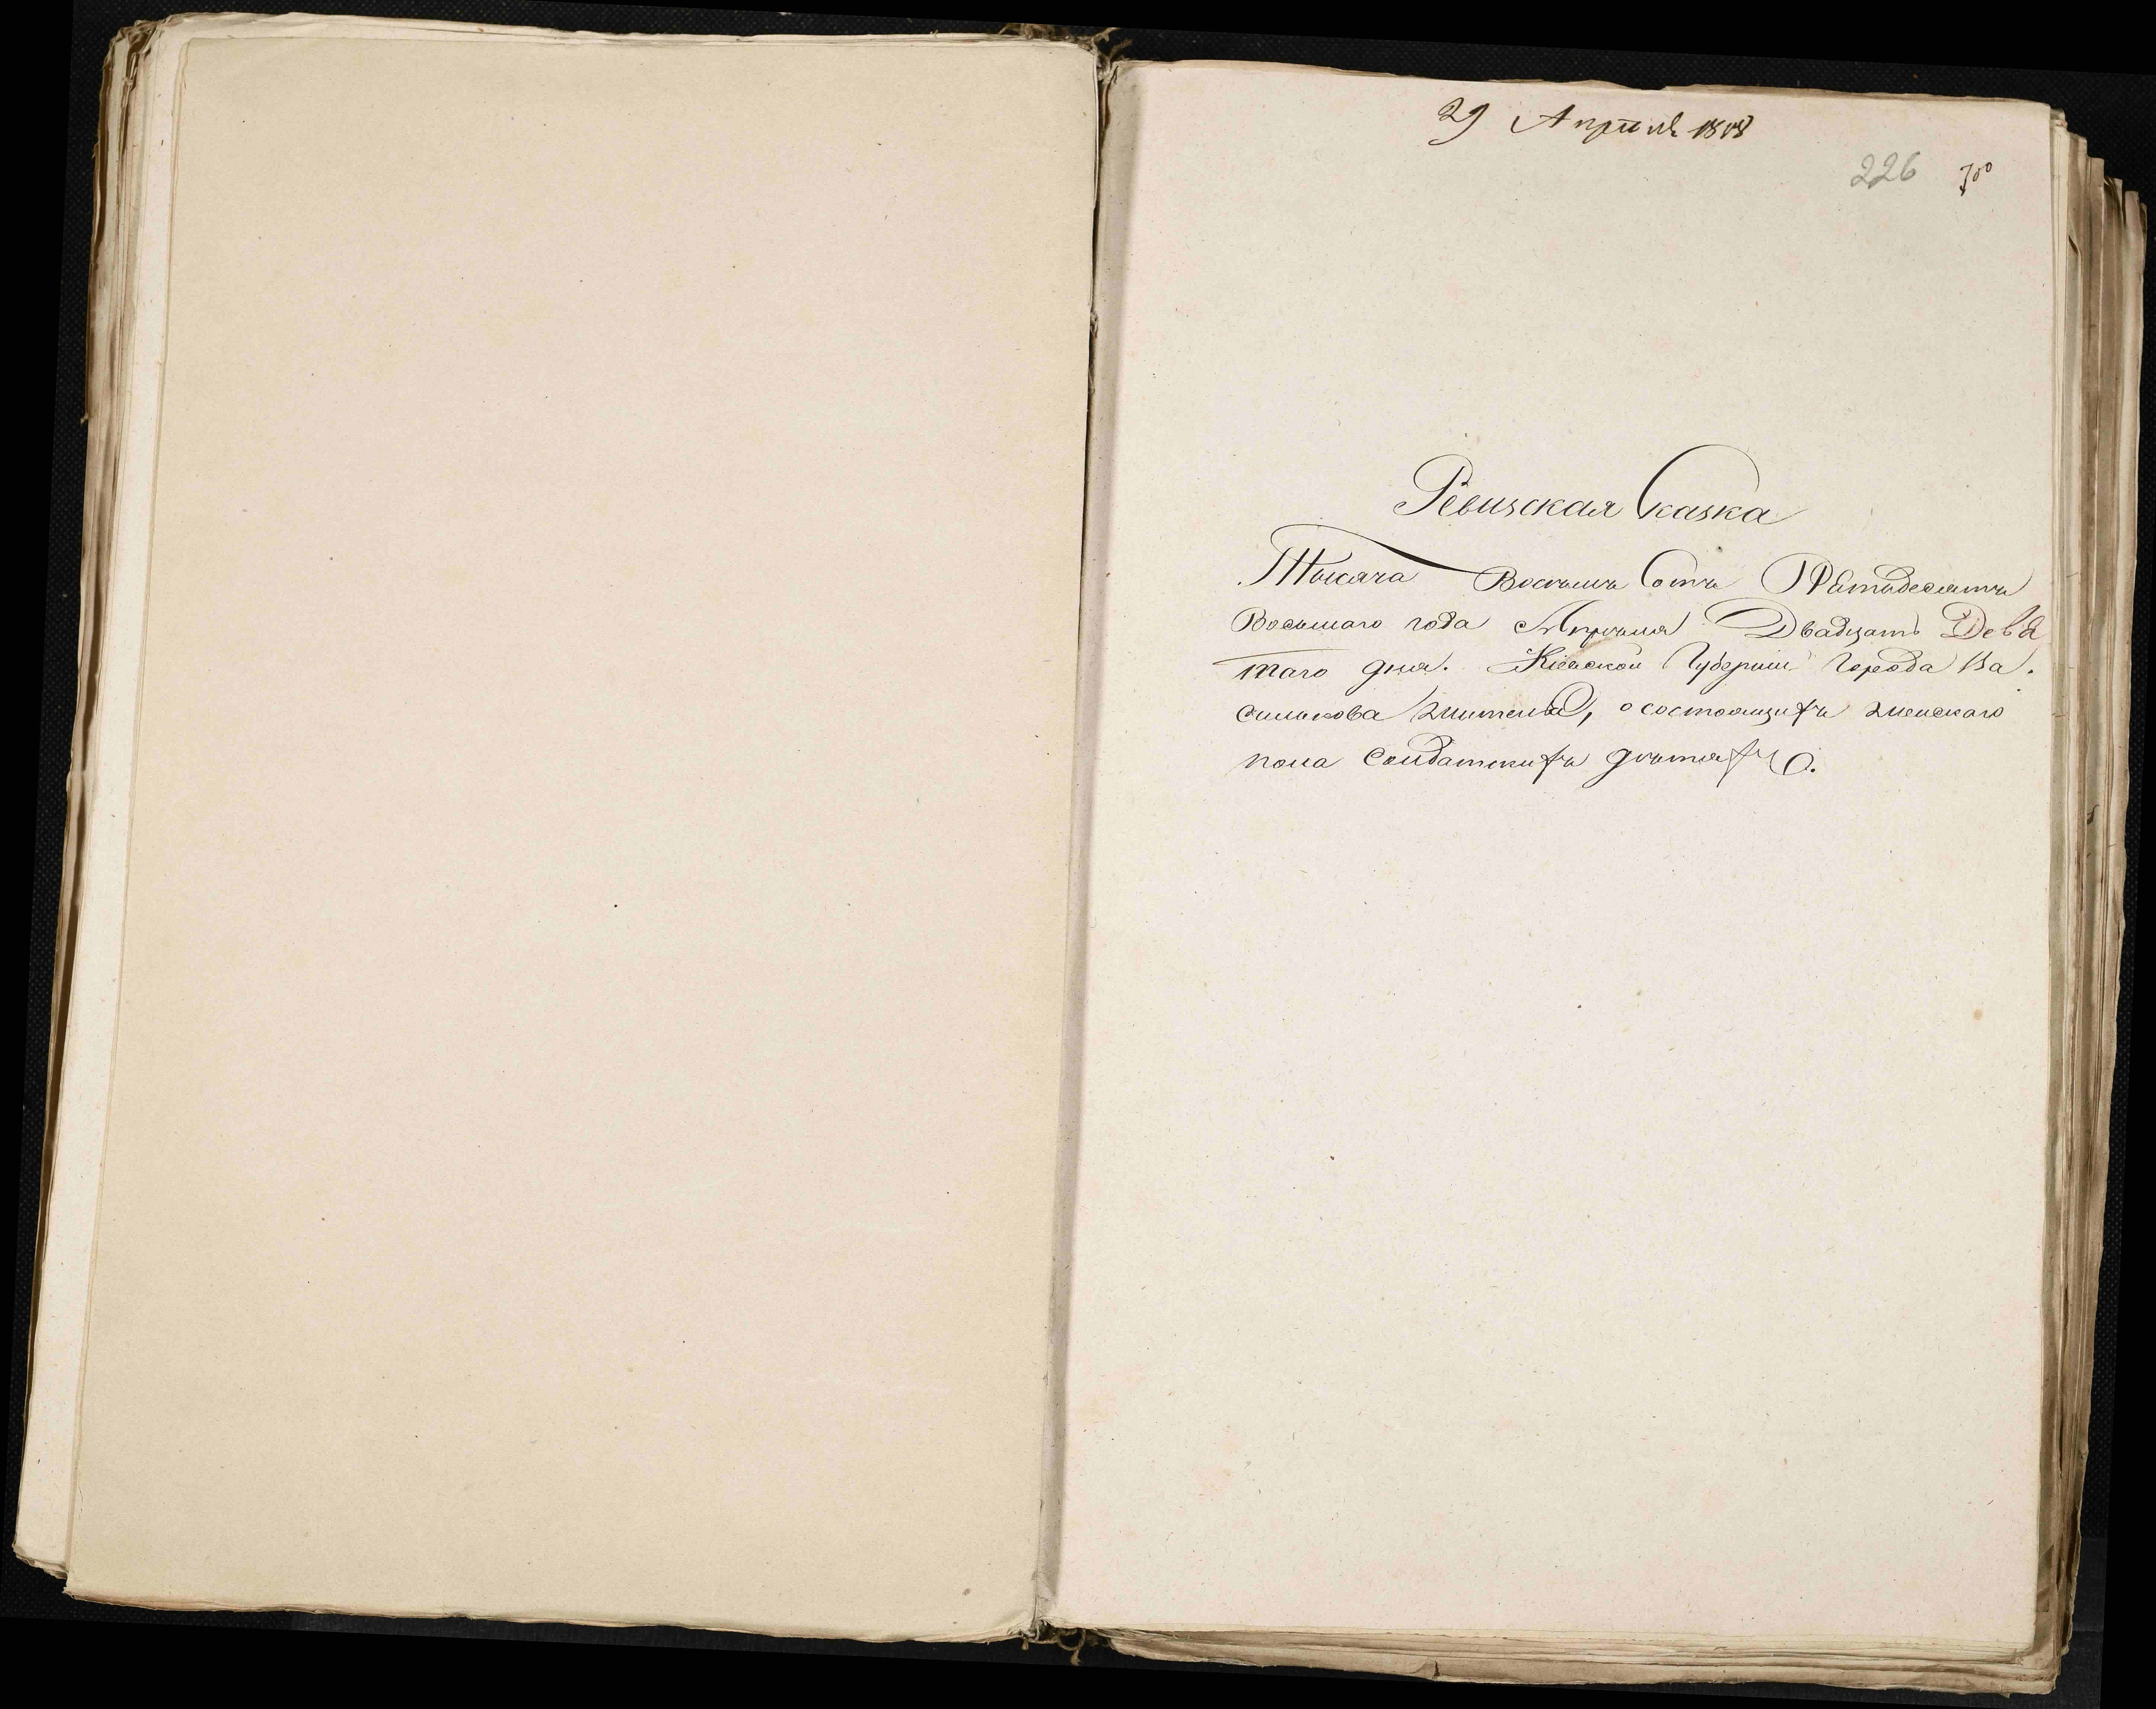 29 Апрѣля 1858
226 700
Ревизская Сказка
Тысяча Восѣмъ Сотъ Пятьдесятъ
Восьмаго года Апрѣля Двадцать Девя
таго дня. Кіевской Губерніи Города Ва.
силькова жителей, о состоящихъ женскаго
пола Солдатскихъ дѣтяхъ.